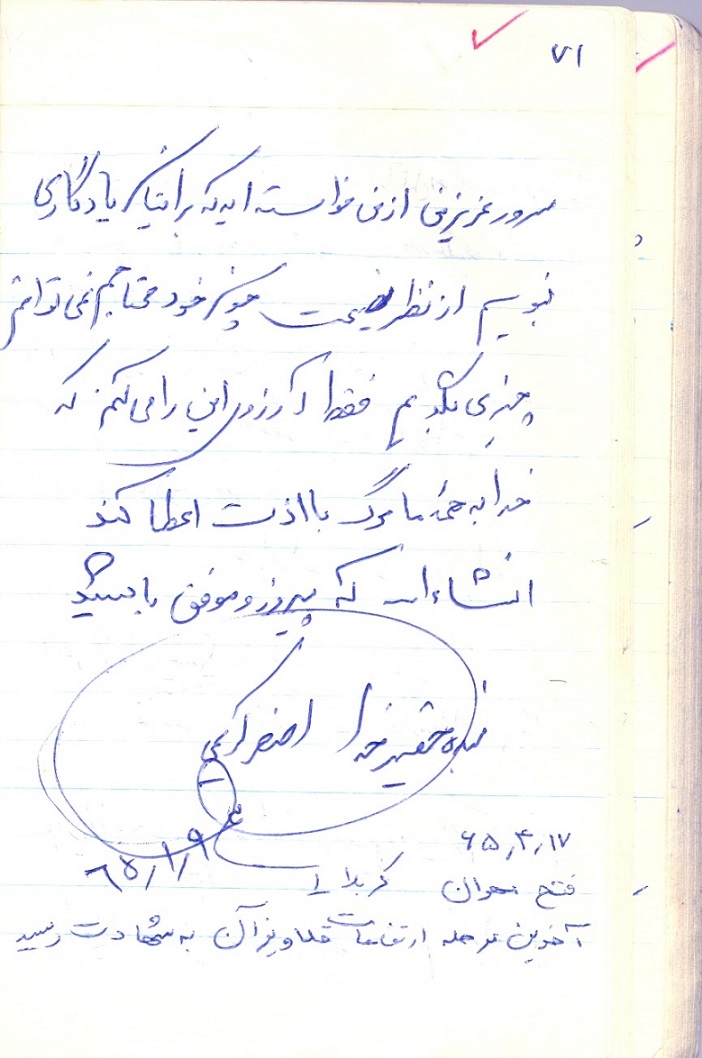 ۷۱
سرور عزیزم از من خواسته اید که برایتان یادگاری
بنویسم از نظر نصیحت چونکه خود محتاجم نمی توانم
چیزی بگویم فقط آرزوی این را می کنم که
خدا به همۀ ما مرگ با لذت اعطا کند
انشاءاله که پیروز و موفق باشید
بنده حقیر خدا اصغر کریمی
۶۵/۱/۹
۶۵٫۴٫۱۷
فتح مهران کربلای ۱
آخرین مرحله ارتفاعات قلاویزان به شهادت رسید